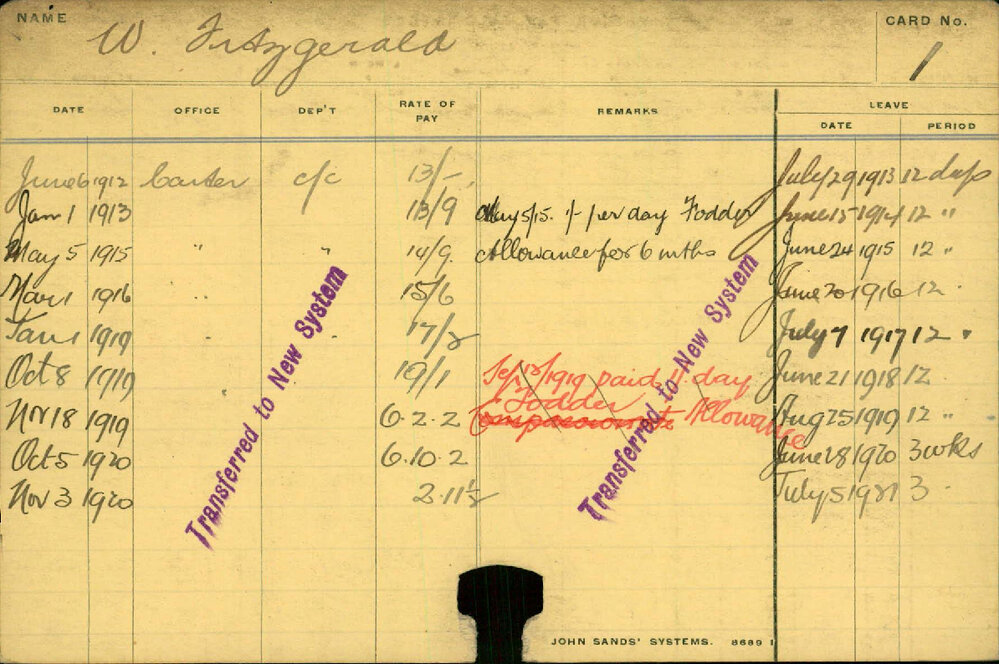 NAME W. Fitzgerald CARD No. 1
DATE OFFICE DEP'T RATE OF PAY REMARKS LEAVE
DATE PERIOD
June 6 1912 Carter c/c 13/- July 29 1913 12 days
Jan 1 1913 13/9 May 5/15. 1/- per day Fodder June 15 1914 12 "
May 5 1915 " " 14/9. Allowance for 6 mths June 24 1915 12 "
Mar 1 1916 15/6 June 20 1916 12 "
Jan 1 1919 17/2 July 7 1917 12 "
Oct 8 1919 19/1 Sep 13/1919 paid 1/- day June 21 1918 12
Fodder
Nov 18 1919 6.2.2 Compassionate Allowance Aug 25 1919 12 "
Oct 5 1920 6.10.2 June 28 1920 3 wks
Nov 3 1920 2.11½ July 5 1921 3 "
Transferred to New System
Transferred to New System
JOHN SANDS' SYSTEMS. 8689 1